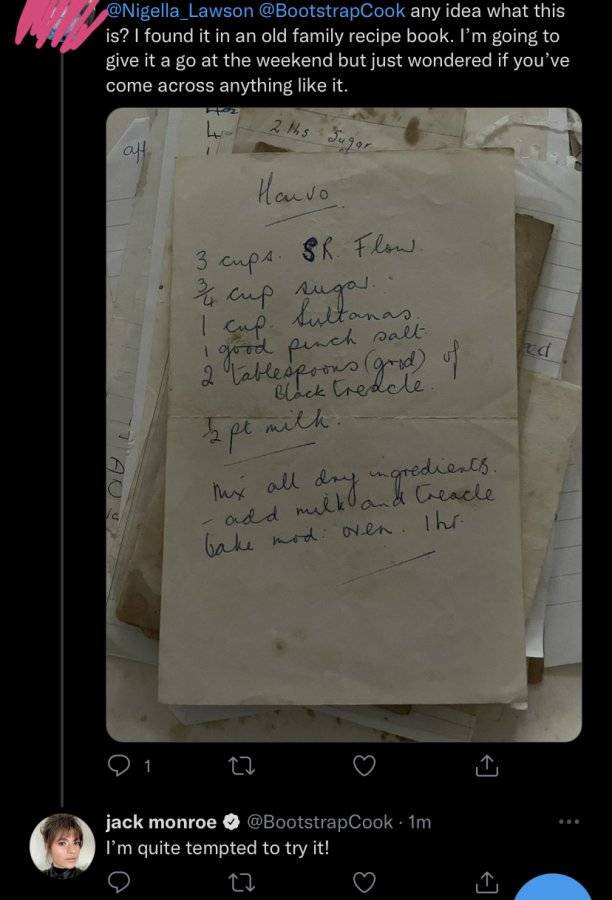 @Nigella_Lawson @BootstrapCook any idea what this
is? I found it in an old family recipe book. I'm going to
give it a go at the weekend but just wondered if you've
come across anything like it.
2 lbs Sugar
Harvo
3 cups. SR. Flour
3/4 cup sugar.
1 cup Sultanas.
1 good pinch salt
2 tablespoons (good) of
Black treacle.
1/2 pt milk.
Mix all dry ingredients.
- add milk and treacle
bake mod: oven. 1hr.
1
jack monroe @BootstrapCook · 1m
I'm quite tempted to try it!